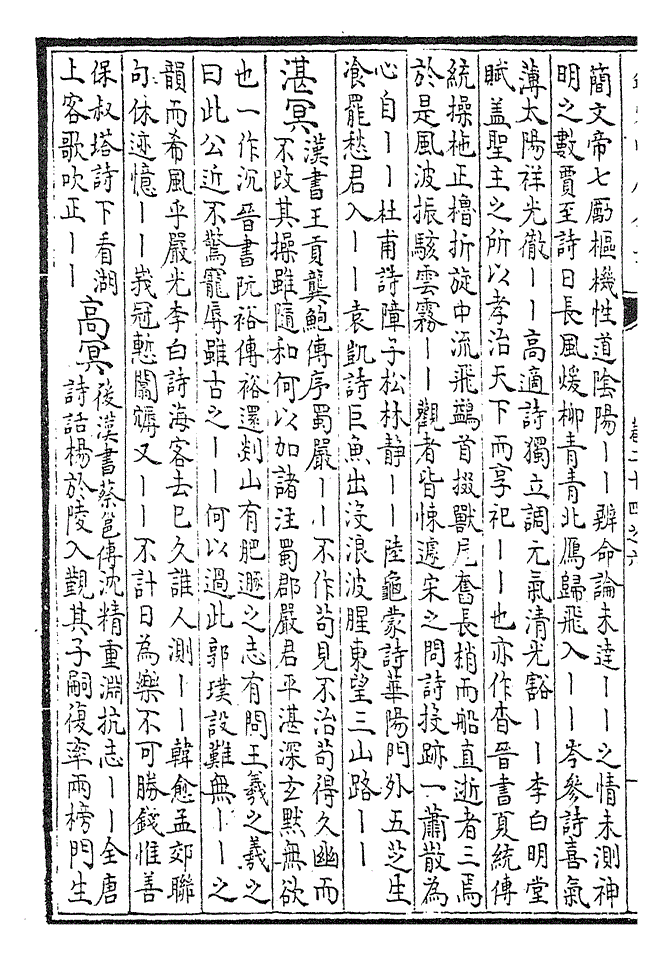 簡文帝七勵樞機性道陰陽——辨命論未達——之情未測神
明之數賈至詩日長風煖柳青青北鴈歸飛入——岑參詩喜氣
薄太陽祥光徹——高適詩獨立調元氣清光豁——李白明堂
賦蓋聖主之所以孝治天下而享祀——也亦作杳晉書夏統傳
統操柂正櫓折旋中流飛鷁首掇獸尾奮長梢而船直逝者三焉
於是風波振駭雲霧——觀者皆悚遽宋之問詩投跡一蕭散為
心自——杜甫詩障子松林靜——陸龜蒙詩華陽門外五芝生
飡罷愁君入——袁凱詩巨魚出沒浪波腥東望三山路——
湛冥
漢書王貢龔鮑傳序蜀嚴——不作苟見不治苟得久幽而
不改其操雖隨和何以加諸注蜀郡嚴君平湛深玄默無欲
也一作沉晉書阮裕傳裕還剡山有肥遯之志有問王羲之羲之
曰此公近不驚寵辱雖古之——何以過此郭璞設難無——之
韻而希風乎嚴光李白詩海客去已久誰人測——韓愈孟郊聯
句休迹憶——峩冠慙闒𦒋又——不計日為樂不可勝錢惟善
保叔塔詩下看湖
上客歌吹正——
高冥
後漢書蔡邕傳沈精重淵抗志——全唐
詩話楊於陵入覲其子嗣復率兩榜門生
卷二十四之六